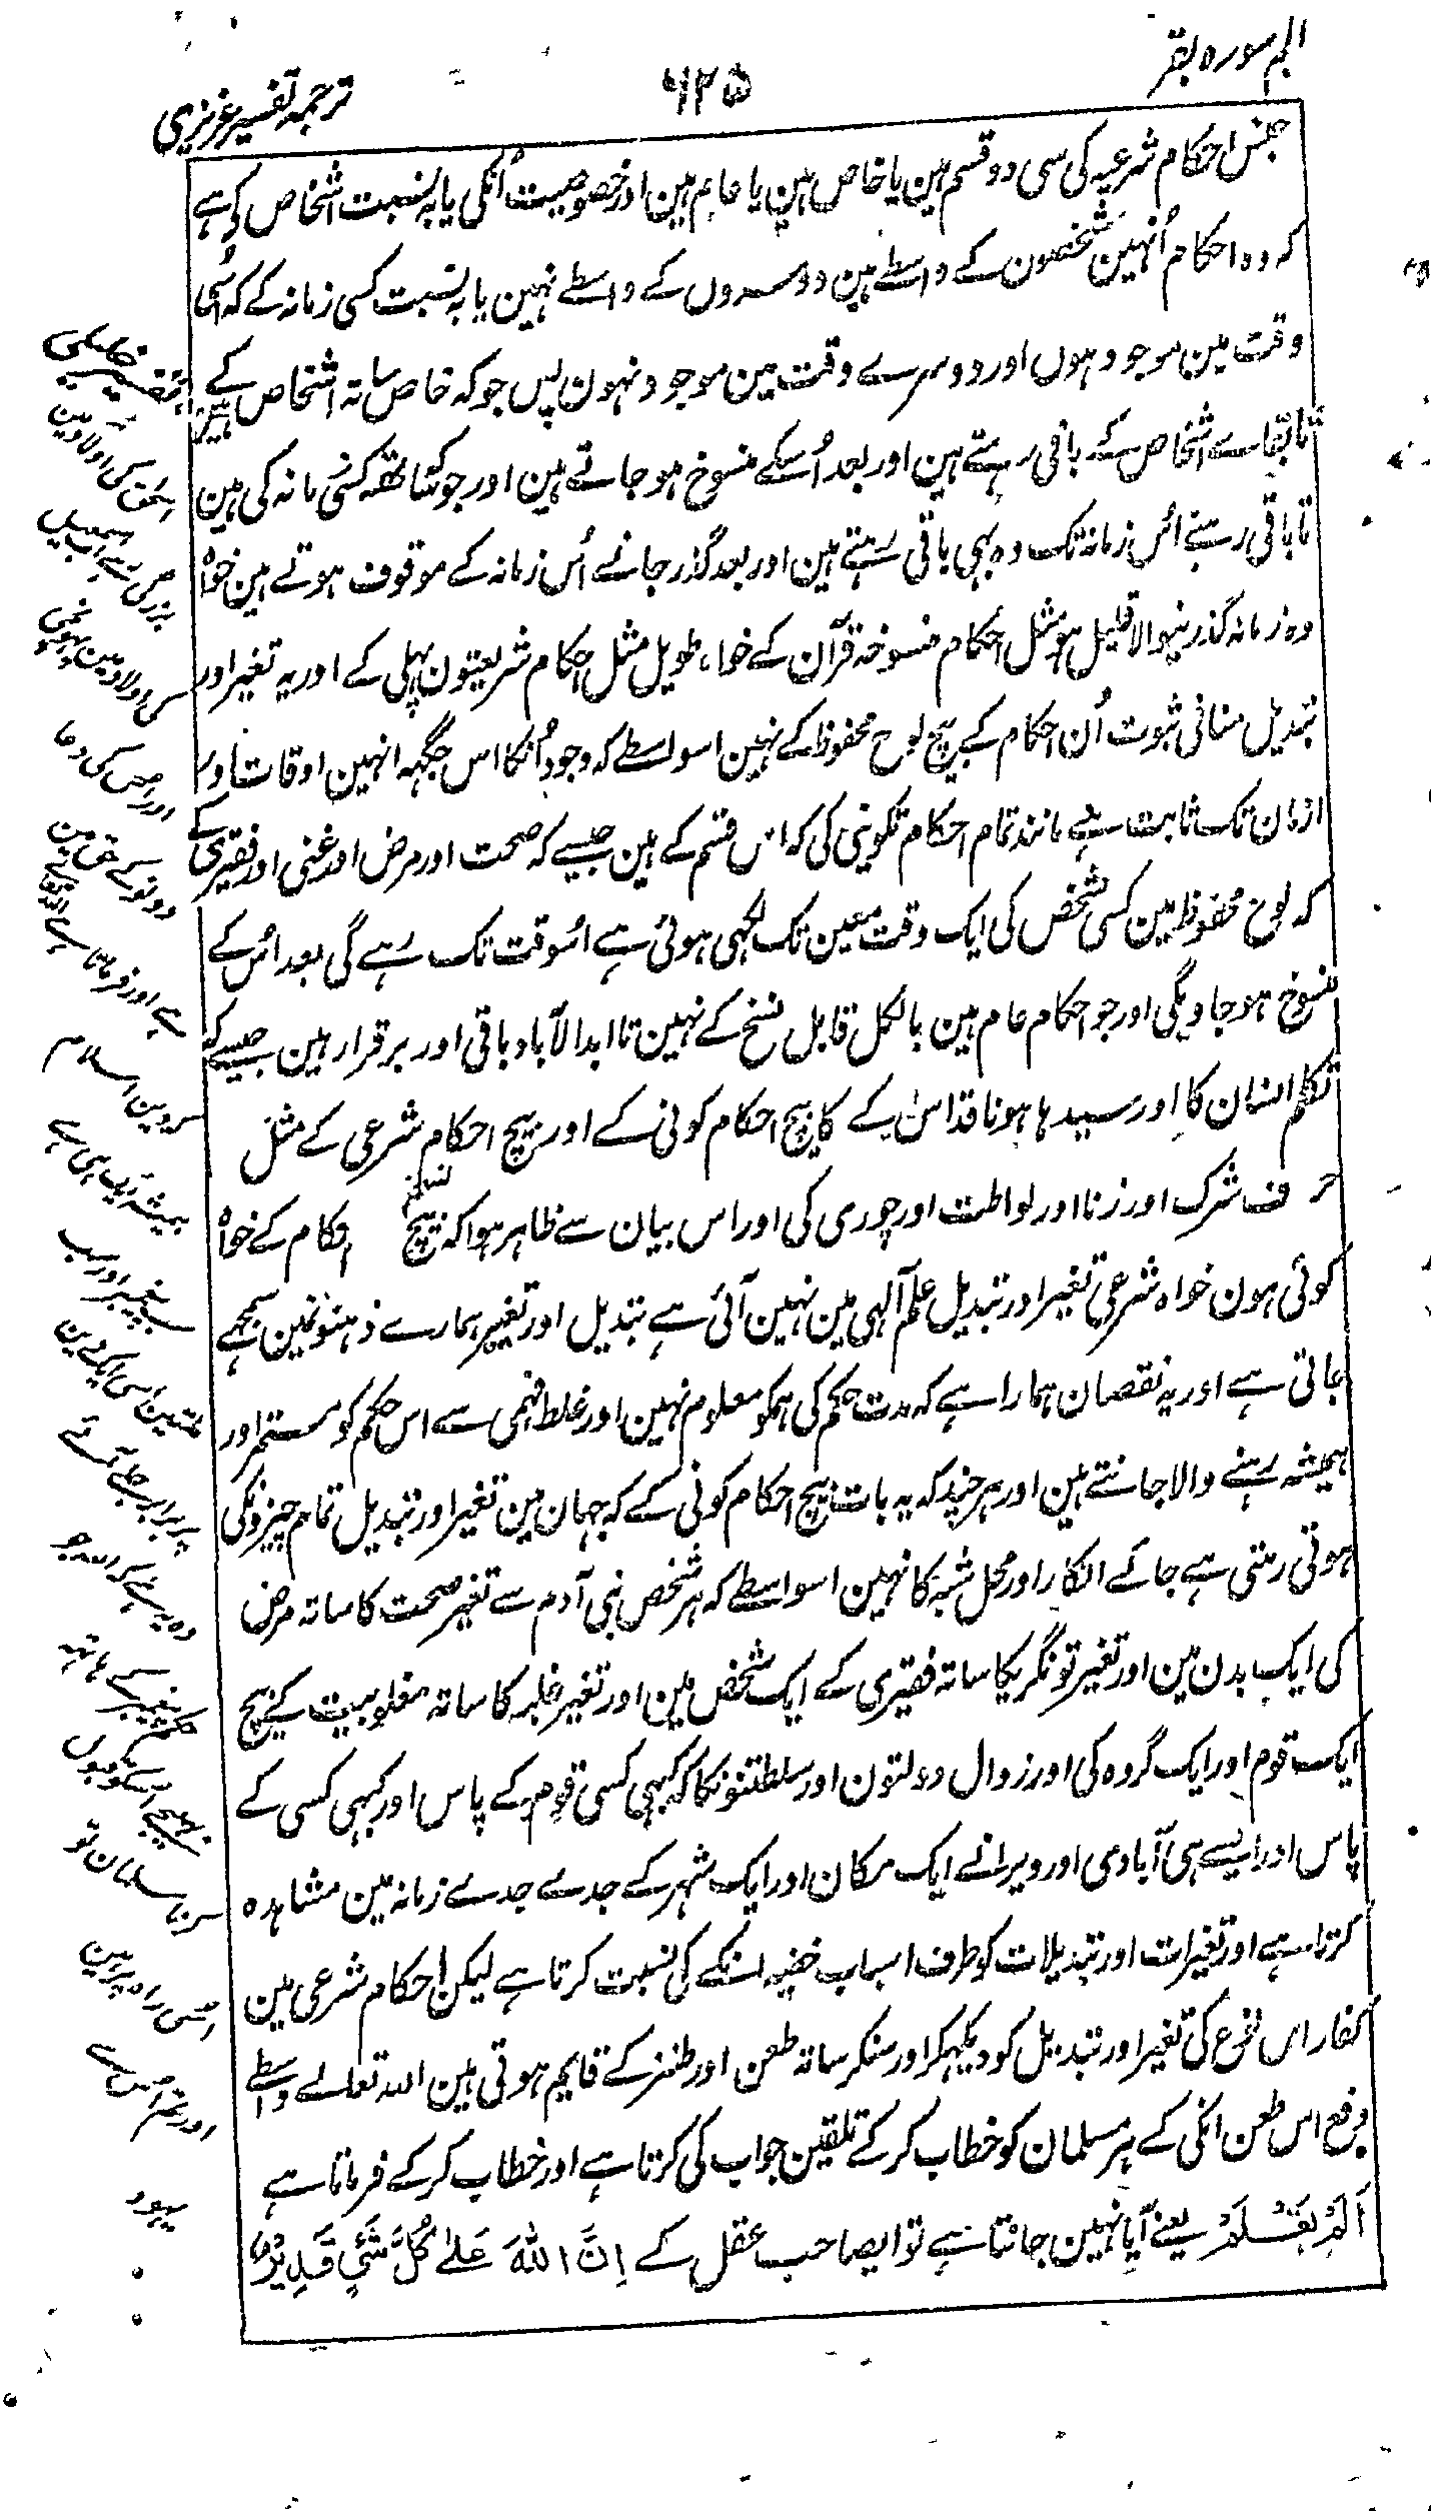 الم سوره بقر
۶۲۵
ترجمہ تفسیر عزیزی
جنس احکام شرعیہ کی سی دو قسم ہین یا خاص ہین یا عام ہین اور خصوصیت اُنکی یا بہ نسبت اشخاص کی ہے
کہ وہ احکام اُنہین شخصون کے واسطے ہین دوسروں کے واسطے نہین یا بہ نسبت کسی زمانہ کے کہ اُسی
وقت مین موجود ہوں اور دوسرے وقت مین موجود نہون پس جو کہ خاص ساتہ اشخاص کے ہین
تا بقاے اشخاص کے باقی رہتے ہین اور بعد اُسکے منسوخ ہو جاتے ہین اور جو کہ ساتھہ کسی زمانہ کی ہین
تا باقی رہنے اس زمانہ تک وہ بہی باقی رہتے ہین اور بعد گذر جانے اُس زمانہ کے موقوف ہوتے ہین خواہ
وہ زمانہ گذرنیوالا قلیل ہو مثل احکام منسوخہ قرآن کے خواہ طویل مثل احکام شریعتون پہلی کے اور یہ تغیر اور
تبدیل منافی ثبوت اُن احکام کے بیچ لوح محفوظ کے نہین اسواسطے کہ وجود اُنکا اس جگہہ انہین اوقات اور
ازمان تک ثابت ہے مانند تمام احکام تکوینی کی کہ اس قسم کے ہین جیسے کہ صحت اور مرض اور غنی اور فقیری کے
کہ لوح محفوظ مین کسی شخص کی ایک وقت معین تک لکہی ہوئی ہے اسوقت تک رہے گی بعد اُس کے
منسوخ ہو جاویگی اور جو احکام عام ہین بالکل قابل نسخ کے نہین تا ابدالآباد باقی اور برقرار ہین جیسے کہ
تکلم انسان کا اور سیدہا ہونا قد اس کے کا بیچ احکام کونی کے اور بیچ احکام شرعی کے مثل
حرف شرک اور زنا اور لواطت اور چوری کی اور اس بیان سے ظاہر ہوا کہ بیچ نسخ احکام کے خواہ
کوئی ہون خواہ شرعی تغیر اور تبدیل علم الہی مین نہین آئی ہے تبدیل اور تغیر ہمارے ذہنونمین سمجہے
جاتی ہے اور یہ نقصان ہمارا ہے کہ مدت حکم کی ہمکو معلوم نہین اور غلط فہمی سے اس حکم کو مستمر اور
ہمیشہ رہنے والا جانتے ہین اور ہر چند کہ یہ بات بیچ احکام کونی کے کہ جہان مین تغیر اور تبدیل تمام چیزونکی
ہوتی رہتی ہے جاے انکار اور محل شبہ کا نہین اسواسطے کہ ہر شخص بنی آدم سے تغیر صحت کا ساتہ مرض
کی ایک بدن مین اور تغیر تونگریکا ساتہ فقیری کے ایک شخص مین اور تغیر غلبہ کا ساتہ مغلوبیت کے بیچ
ایک قوم اور ایک گروہ کی اور زوال دولتون اور سلطنتونکا کہ کبہی کسی قوم کے پاس اور کبہی کسی کے
پاس اور ایسے ہی آبادی اور ویرانے ایک مکان اور ایک شہر کے جدے جدے زمانہ مین مشاہدہ
کرتا ہے اور تغیرات اور تبدیلات کو طرف اسباب خفیہ انکے کی نسبت کرتا ہے لیکن احکام شرعی مین
کفار اس نوع کی تغیر اور تبدیل کو دیکہکر اور سنکر ساتہ طعن اور طنز کے قایم ہوتی ہین اللہ تعالے واسطے
دفع اس طعن انکی کے ہر مسلمان کو خطاب کر کے تلقین جواب کی کرتا ہے اور خطاب کر کے فرماتا ہے
اَلَمْ تَعْلَمْ یعنے آیا نہین جانتا ہے تو ایصاحب عقل کے اِنَّ اللّٰهَ عَلٰى كُلِّ شَیْءٍ قَدِیْرٌ
اسحق کی اولاد مین
اور اس کی دعا
دونو کے حق مین
ہے اور فرماتا ہے
دین اسلام
ہمیشہ ایک ہی ہے
سب پیغمبر اور سب
امتین اسی ایک دین
پر برابر چلے آئے
وہ یہ ہے کہ اللہ جو
حکم پیغمبر کے ہاتھہ
بھیجے اسکو قبول
کرنا مسلمان تو
اس راہ پر ہین
اور تم اس سے